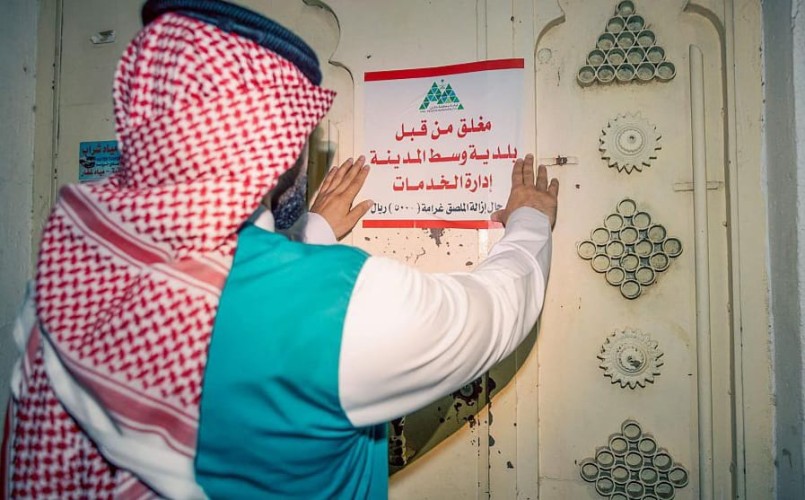 مغلق من قبل
بلدية وسط المدينة
إدارة الخدمات
حال إزالة الملصق غرامة (٥٠٠٠) ريال
مياه شراب